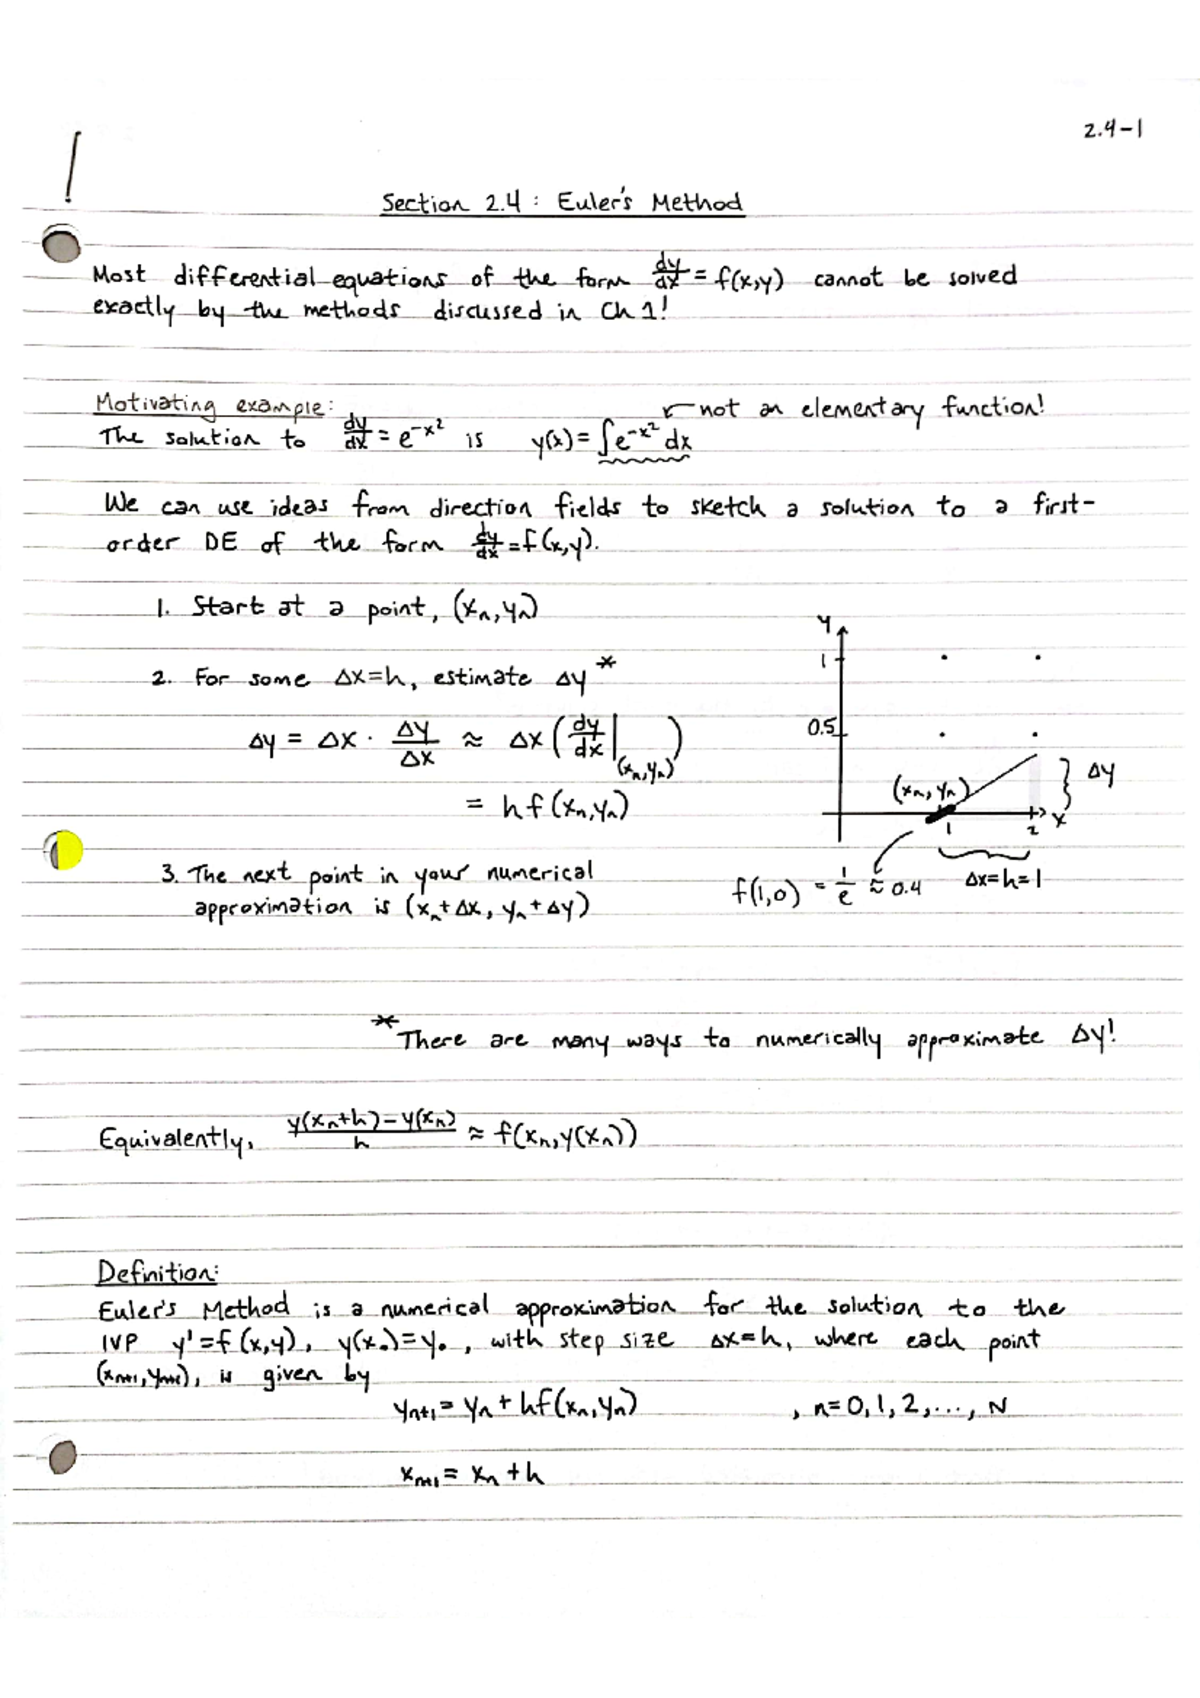 2.4-1
Section 2.4 : Euler's Method
Most differential equations of the form dy/dx = f(x,y) cannot be solved
exactly by the methods discussed in Ch 1!
Motivating example:
← not an elementary function!
The solution to dy/dx = e^-x² is y(x) = ∫e^-x² dx
We can use ideas from direction fields to sketch a solution to a first-
order DE of the form dy/dx = f(x,y).
1. Start at a point, (xₙ,yₙ)
2. For some Δx=h, estimate Δy *
Δy = Δx · Δy/Δx ≈ Δx (dy/dx |(xₙ,yₙ))
= hf(xₙ,yₙ)
3. The next point in your numerical
approximation is (xₙ+Δx, yₙ+Δy)
y
1
0.5
(xₙ,yₙ)
Δy
1
2
x
Δx=h=1
f(1,0) = 1/e ≈ 0.4
* There are many ways to numerically approximate Δy!
Equivalently, (y(xₙ+h)-y(xₙ))/h ≈ f(xₙ,y(xₙ))
Definition:
Euler's Method is a numerical approximation for the solution to the
IVP y'=f(x,y), y(x₀)=y₀, with step size Δx=h, where each point
(xₙ₊₁,yₙ₊₁), is given by
yₙ₊₁ = yₙ + hf(xₙ,yₙ) , n=0,1,2,..., N
xₙ₊₁ = xₙ + h